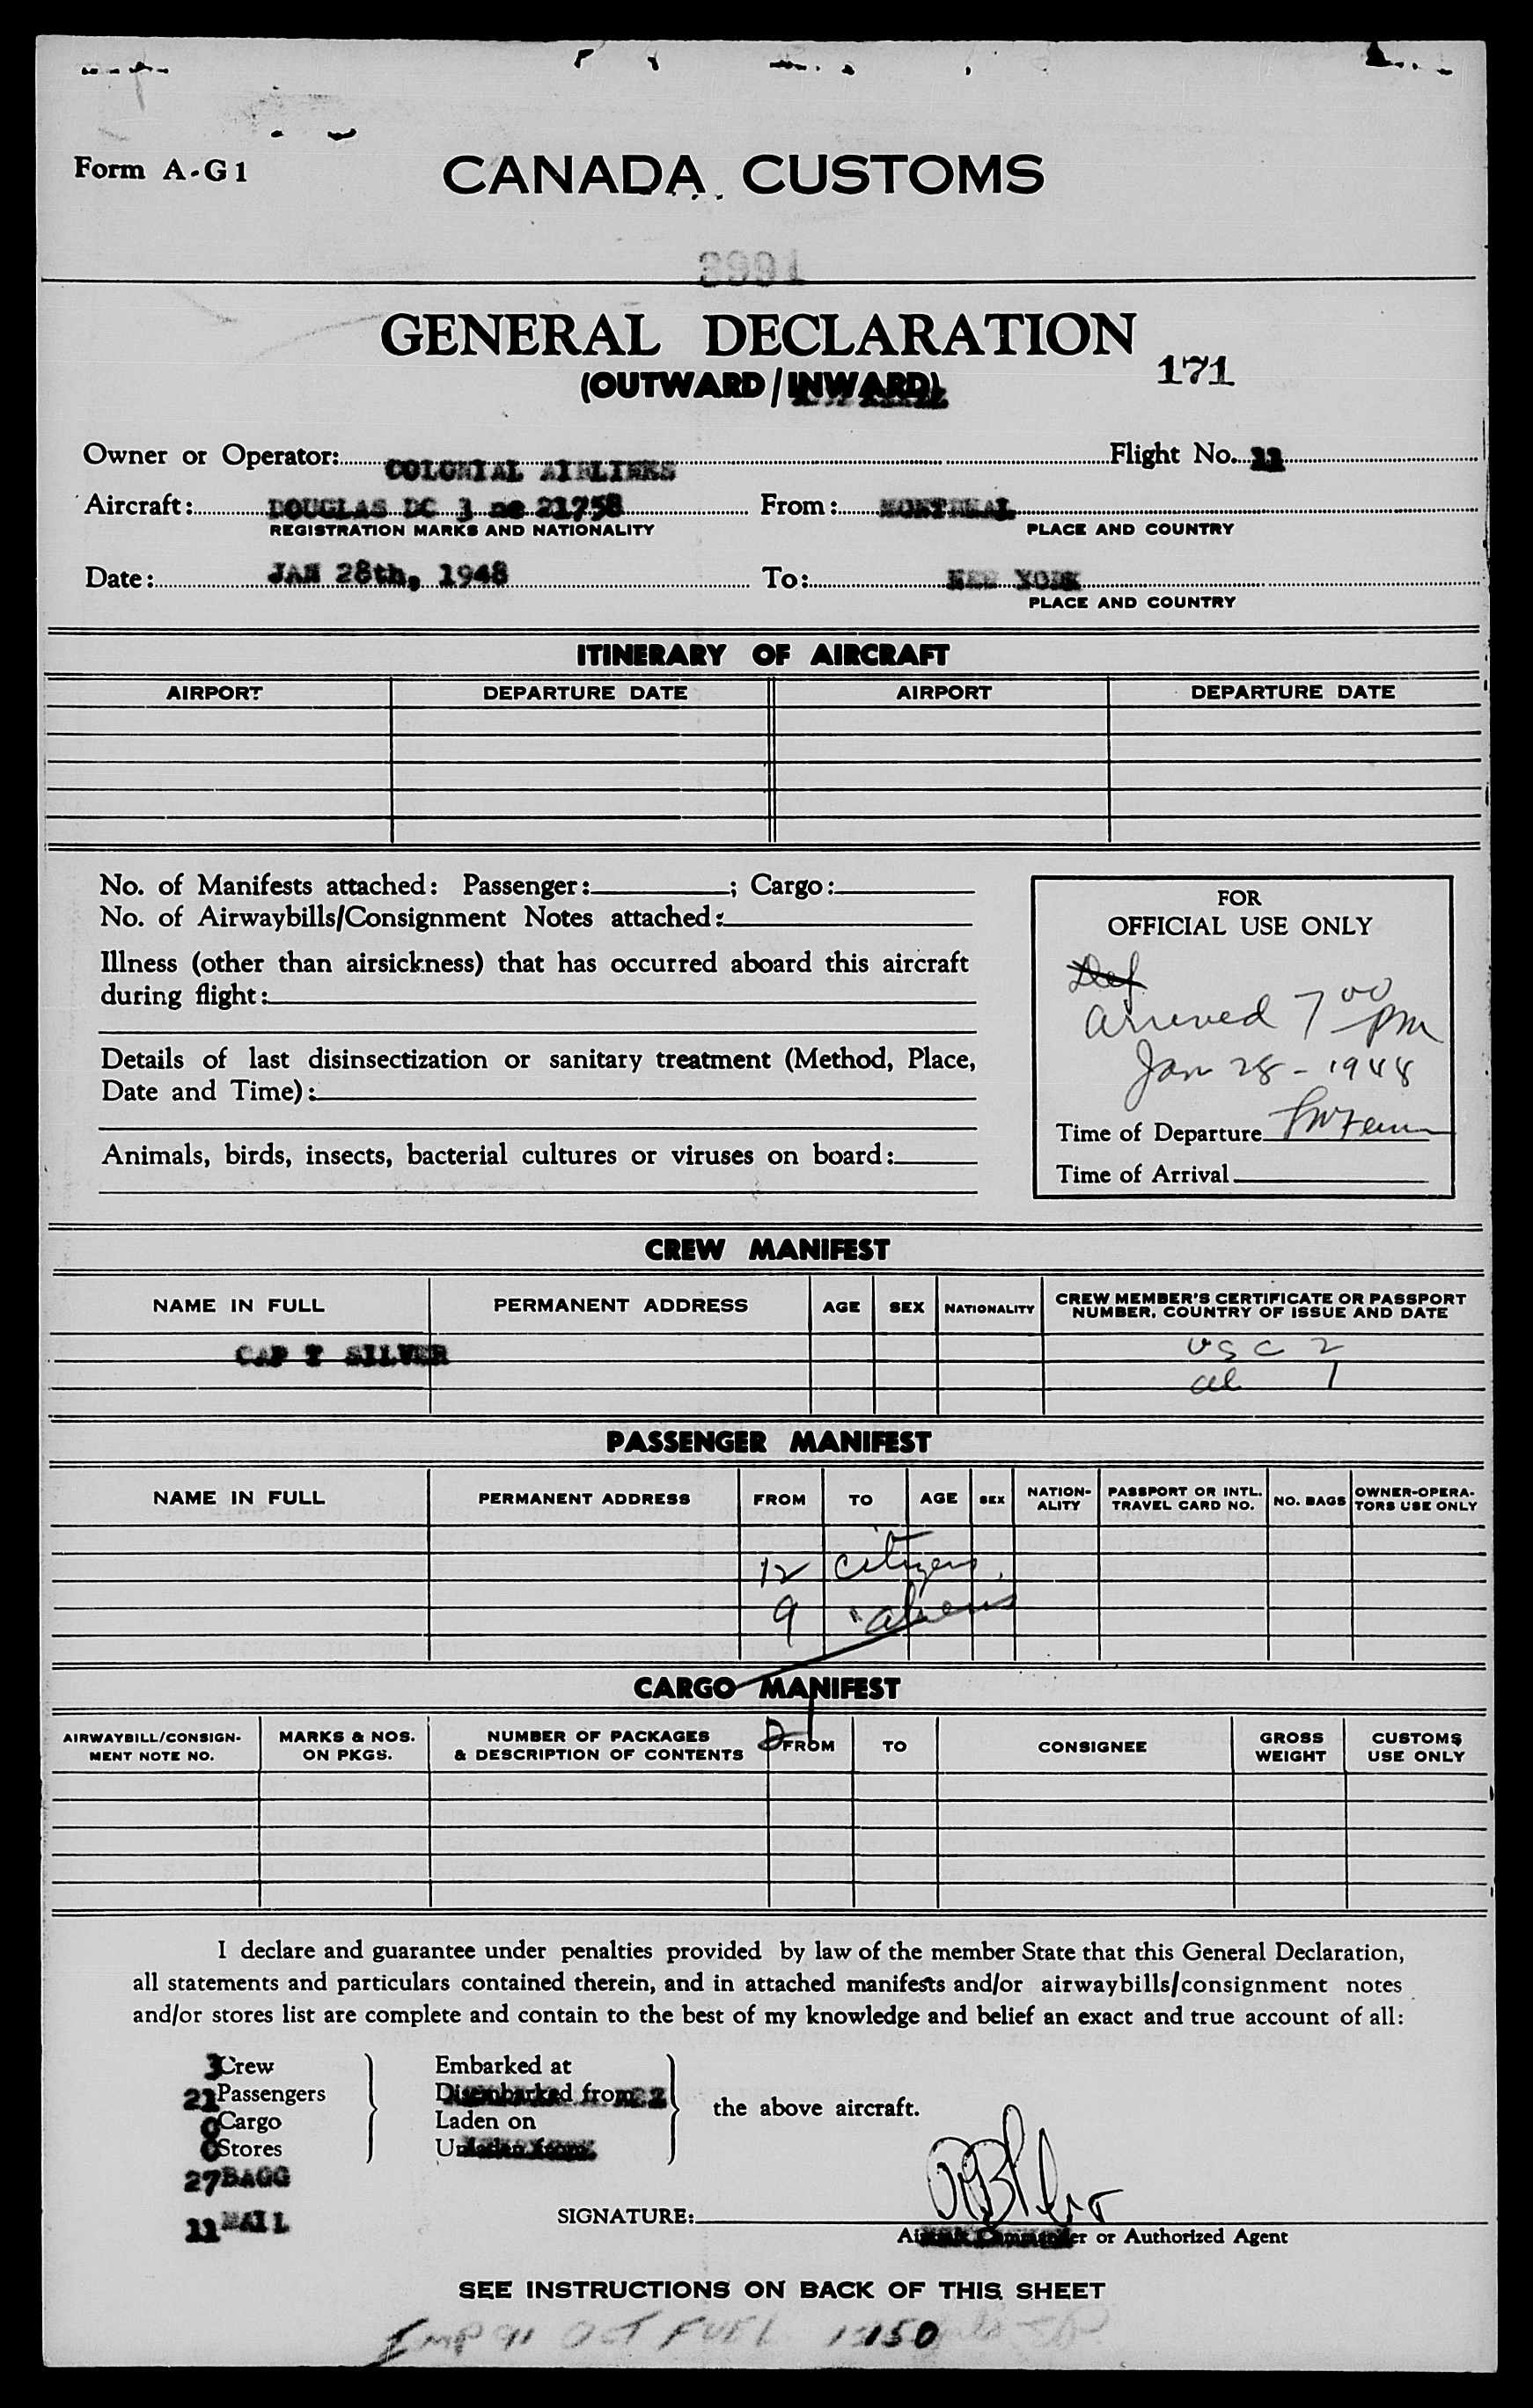 Form A-G1
CANADA CUSTOMS
GENERAL DECLARATION
(OUTWARD/INWARD)
171
Owner or Operator: COLONIAL AIRLINES Flight No. 11
Aircraft: DOUGLAS DC 3 nc 21758 From: MONTREAL
REGISTRATION MARKS AND NATIONALITY PLACE AND COUNTRY
Date: JAN 28th, 1948 To: NEW YORK
PLACE AND COUNTRY
ITINERARY OF AIRCRAFT
AIRPORT DEPARTURE DATE AIRPORT DEPARTURE DATE
No. of Manifests attached: Passenger: ; Cargo:
No. of Airwaybills/Consignment Notes attached:
Illness (other than airsickness) that has occurred aboard this aircraft
during flight:
Details of last disinsectization or sanitary treatment (Method, Place,
Date and Time):
Animals, birds, insects, bacterial cultures or viruses on board:
FOR
OFFICIAL USE ONLY
Arrived 7 00 pm
Jan 28 - 1948
Time of Departure
Time of Arrival
CREW MANIFEST
NAME IN FULL PERMANENT ADDRESS AGE SEX NATIONALITY CREW MEMBER'S CERTIFICATE OR PASSPORT
NUMBER, COUNTRY OF ISSUE AND DATE
CAP T SILVER USC 2
al 1
PASSENGER MANIFEST
NAME IN FULL PERMANENT ADDRESS FROM TO AGE SEX NATION-
ALITY PASSPORT OR INTL.
TRAVEL CARD NO. NO. BAGS OWNER-OPERA-
TORS USE ONLY
12 citizens
9 aliens
CARGO MANIFEST
AIRWAYBILL/CONSIGN-
MENT NOTE NO. MARKS & NOS.
ON PKGS. NUMBER OF PACKAGES
& DESCRIPTION OF CONTENTS FROM TO CONSIGNEE GROSS
WEIGHT CUSTOMS
USE ONLY
I declare and guarantee under penalties provided by law of the member State that this General Declaration,
all statements and particulars contained therein, and in attached manifests and/or airwaybills/consignment notes
and/or stores list are complete and contain to the best of my knowledge and belief an exact and true account of all:
3 Crew Embarked at
21 Passengers Disembarked from
the above aircraft.
0 Cargo Laden on
0 Stores Unladen from
27 BAGG
11 MAIL
SIGNATURE:
Aircraft Commander or Authorized Agent
SEE INSTRUCTIONS ON BACK OF THIS SHEET
IMP 91 OCT FUEL 150